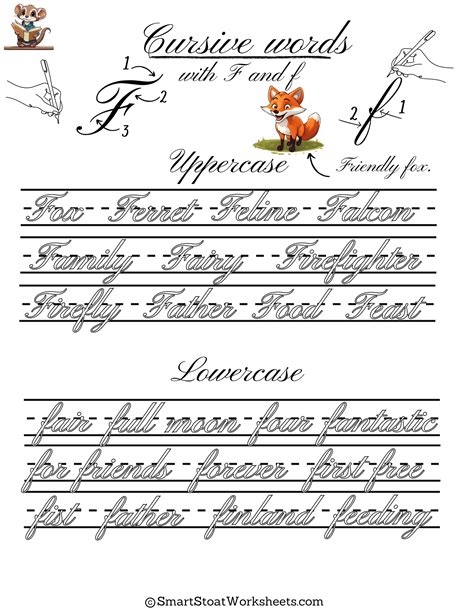 Cursive words
with F and f
1
F
2
3
2
f
1
Uppercase
Friendly fox.
Fox Ferret Feline Falcon
Family Fairy Firefighter
Firefly Father Food Feast
Lowercase
fair full moon four fantastic
for friends forever first free
fist father finland feeding
©SmartStoatWorksheets.com